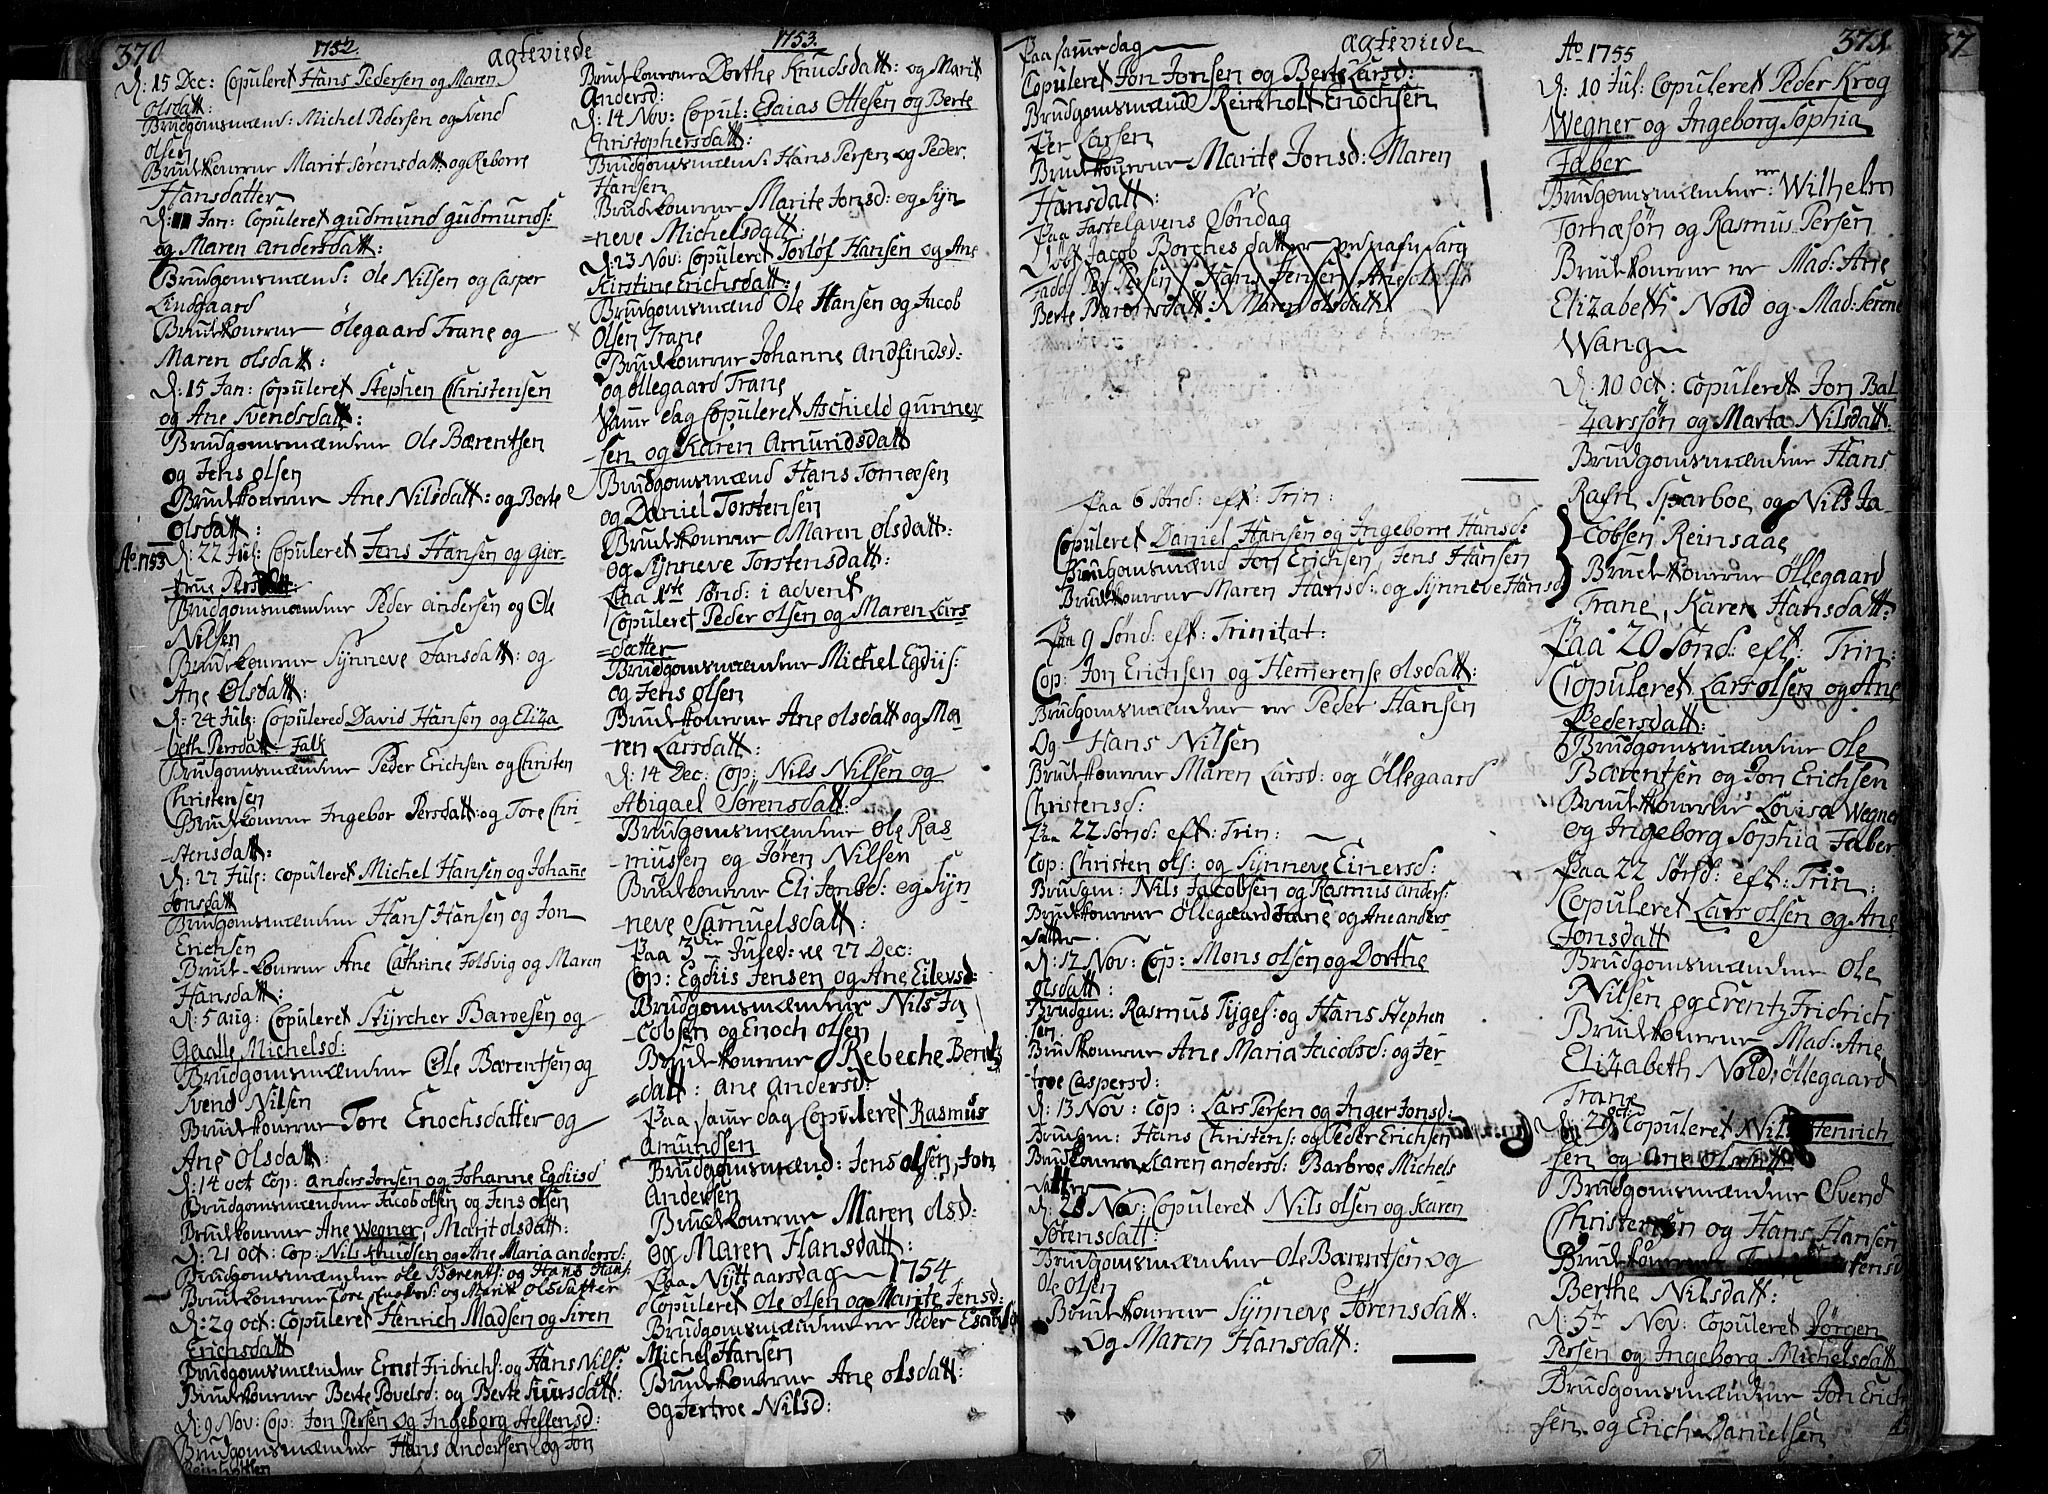 370
1752.
agteviede
D: 15 Dec: Copuleret Hans Pedersen og Maren
Olsdatt:
Brudgomsmænd: Michel Pedersen og Svend
Olsen
Brudekonerne Marit Sørensdatt: og Reborre
Hansdatter
Jan: Copuleret Gudmund Gudmunds:
og Maren Andersdatt:
Brudgomsmænd: Ole Nilsen og Casper
Lindgaard
Brudekonerne Ølegaard Trane og
Maren Olsdatt:
D: 15 Jan: Copuleret Stephen Christensen
og Ane Svendsdatt:
Brudgomsmændene Ole Bærentsen
og Jens Olsen
Brudekonerne Ane Nilsdatt: og Berte
Olsdatt:
Ao. 1753
D: 22 Jul: Copuleret Jens Hansen og Gier-
true Persdatt:
Brudgomsmændene Peder Andersen og Ole
Nilsen
Brudekonerne Synneve Jansdatt: og
Ane Olsdatt:
D: 24 Jul: Copulered David Hansen og Eliza
beth Persdatt: Falk
Brudgomsmændene Peder Erichsen og Christen
Christensen
Brudekonerne Ingebor Persdatt: og Tore Chri-
stensdatt:
D: 27 Jul: Copuleret Michel Hansen og Johane
Jonsdatt
Brudgomsmændene Hans Hansen og Jon
Erichsen
Brudekonerne Ane Cathrine Foldvig og Maren
Hansdatt:
D: 5 Aug: Copuleret Styrcher Baroesen og
Gaalle Michelsd:
Brudgomsmændene Ole Bærentsen og
Svend Nilsen
Brudekonerne Tore Enochsdatter og
Ane Olsdatt:
D: 14 Oct Cop: Anders Jonsen og Johanne Egdiisd
Brudgomsmændene Jacob Olsen og Jens Olsen
Brudekonerne Ane Wegner, Marit Olsdatt:
D: 21 Oct: Cop: Nils Knudsen og Ane Maria Andersd:
Brudgomsmændene Ole Bærents: og Hans Hans:
Brudekonerne Tore Enochsd: og Marit Olsdatter
D: 29 Oct: Copuleret Henrich Madsen og Siren
Erichsdatt
Brudgomsmændene Ernst Fridrichs: og Hans Nils:
Brudekonerne Berte Povelsd: og Berte Siursdatt:
D: 9 Nov: Cop: Jon Persen og Ingeborg Steffensd:
Brudgomsmændene Hans Andersen og Jon
Reinholtsen
1753.
Brudekonerne Dorthe Knudsdatt: og Marit
Andersd:
D: 14 Nov: Copul: Esaias Ottesen og Berte
Christophersdatt:
Brudgomsmænd: Hans Persen og Peder
Hansen
Brudekonerne Marite Jonsd: og Syn
=neve Michelsdatt:
D: 23 Nov: Copuleret Torløf Hansen og Ane
Kirstine Erichsdatt:
Brudgomsmænd Ole Hansen og Jacob
Olsen Trane
Brudekonerne Johanne Andfindsd:
og Øllegaard Trane
Samme dag Copuleret Aschield Gunner
-sen og Karen Amundsdatt
Brudgomsmænd Hans Tomæsen
og Daniel Torstensen
Brudekonerne Maren Olsdatt:
og Synneve Torstensdatt:
Paa 1ste Sønd: i advent
Copuleret Peder Olsen og Maren Lars
=datter
Brudgomsmændene Michel Egdiis:
og Jens Olsen
Brudekonerne Ane Olsdatt og Ma
-ren Larsdatt:
D: 14 Dec: Cop: Nils Nilsen og
Abigael Sørensdatt:
Brudgomsmændene Ole Ras-
mussen og Jøren Nilsen
Brudekonerne Eli Jonsd: og Syn-
neve Samuelsdatt:
Paa 3die Juled: 27 Dec:
Cop: Egdiis Jensen og Ane Eilersd:
Brudgomsmændene Nils Ja
-cobsen og Enoch Olsen
Brudekonerne Rebeche Berents
=datt: Ane Andersd:
Paa samme dag Copuleret Rasmus
Amundsen
Brudgomsmænd: Jens Olsen, Jon
Andersen
Brudekonerne Maren Olsd:
og Maren Hansdatt:
Paa Nyttaarsdag 1754
Copuleret Ole Olsen og Marite Jensd:
Brudgomsmændene Peder
Michel Hansen
Brudekonerne Ane Olsdatt:
og Jertroe Nilsd:
Paa samme dag
agteviede
Copuleret Jon Jonsen og Berte Larsd:
Brudgomsmænd Reinholt Enochsen
Per Larsen
Brudekonerne Marite Jonsd: Maren
Hansdatt:
Paa Fastelavens Søndag
Døbt Jacob Borches datter ved nafn Sara
Fadd: Per Persen Hans Jensen
Berte Baronsdatt: Maren Olsdatt
Paa 6 Sønd: eft: Trin:
Copuleret Daniel Hansen og Ingeborre Hansd:
Brudgomsmænd Jon Erichsen, Jens Hansen
Brudekonerne Maren Hansd: og Synneve Hansd
Paa 9 Sønd: eft: Trinitat:
Cop: Jon Erichsen og Hemerense Olsdatt:
Brudgomsmændene er Peder Hansen
Og Hans Nilsen
Brudekonerne Maren Larsd: og Øllegaard
Christensd:
Paa 22 Sønd: eft: Trin:
Cop: Christen Ols: og Synneve Einersd:
Brudgm: Nils Jacobsen og Rasmus Anders:
Brudekonerne Øllegaard Trane og Ane Anders-
datter
D: 12 Nov: Cop: Mons Olsen og Dorthe
Olsdatt:
Brudgm: Rasmus Tyges: og Hans Stephen
sen
Brudekonerne Ane Maria Jacobsd: og Jer-
troe Caspersd:
D: 13 Nov: Cop: Lars Persen og Inger Jonsd:
Brudgm: Hans Christens: og Peder Erichsen
Brudekonerne Karen Andersd: Barbroe Michels
datter
D: 28 Nov: Copuleret Nils Olsen og Karen
Sørensdatt:
Brudgomsmændene Ole Bærentsen og
Ole Olsen
Brudekonerne Synneve Sørensdatt:
Og Maren Hansdatt:
371
Ao 1755
D: 10 Jul: Copuleret Peder Krog
Wegner og Ingeborg Sophia
Faber
Brudgomsmændene er: Wilhelm
Tomæsøn og Rasmus Persen
Brudekonerne er Mad: Ane
Elizabeth Nold og Mad: Serene
Wang
D: 10 Oct: Copuleret Jon Bal
-zarssøn og Marta Nilsdatt:
Brudgomsmændene Hans
Rafn Sparboe og Nils Ja-
-cobsen Reinsaae
Brudekonerne Øllegaard
Trane, Karen Hansdatt:
Paa 20 Sønd: eft: Trin:
Copuleret Lars Olsen og Ane
Pedersdatt:
Brudgomsmændene Ole
Bærentsen og Jon Erichsen
Brudekonerne Lovisa Wegner
og Ingeborg Sophia Faber
Paa 22 Sønd: eft: Trin:
Copuleret Lars Olsen og Ane
Jonsdatt
Brudgomsmændene Ole
Nilsen og Erentz Fridrich
Brudekonerne Mad: Ane
Elizabeth Nold, Øllegaard
Trane
D: 28 Oct: Copuleret Nils Henrich
sen og Ane Olsdatt
Brudgomsmændene Svend
Christensen og Hans Hansen
Brudekonerne
Berthe Nilsdatt:
D: 5te Nov: Copuleret Jørgen
Persen og Ingeborg Michelsdatt
Brudgomsmændene Jon Erich
sen og Erich Danielsen